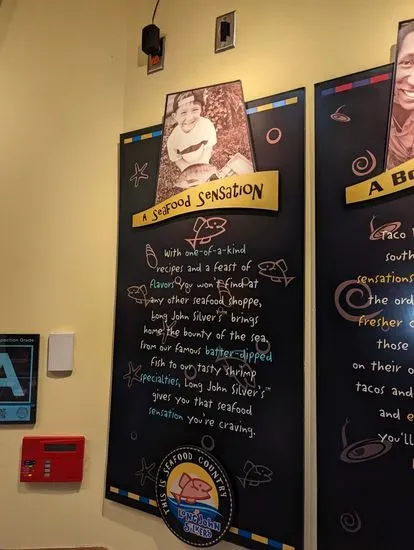 A SEAFOOD SENSATION
With one-of-a-kind
recipes and a feast of
flavors you won't find at
any other seafood shoppe,
Long John Silver's™ brings
home the bounty of the sea.
From our famous batter-dipped
fish to our tasty shrimp
specialties, Long John Silver's™
gives you that seafood
sensation you're craving.
THIS IS SEAFOOD COUNTRY
LONG JOHN
SILVER'S
A BO
Taco
south
sensations
the ord
fresher
those
on their o
tacos and
and e
you'll
Grade
A